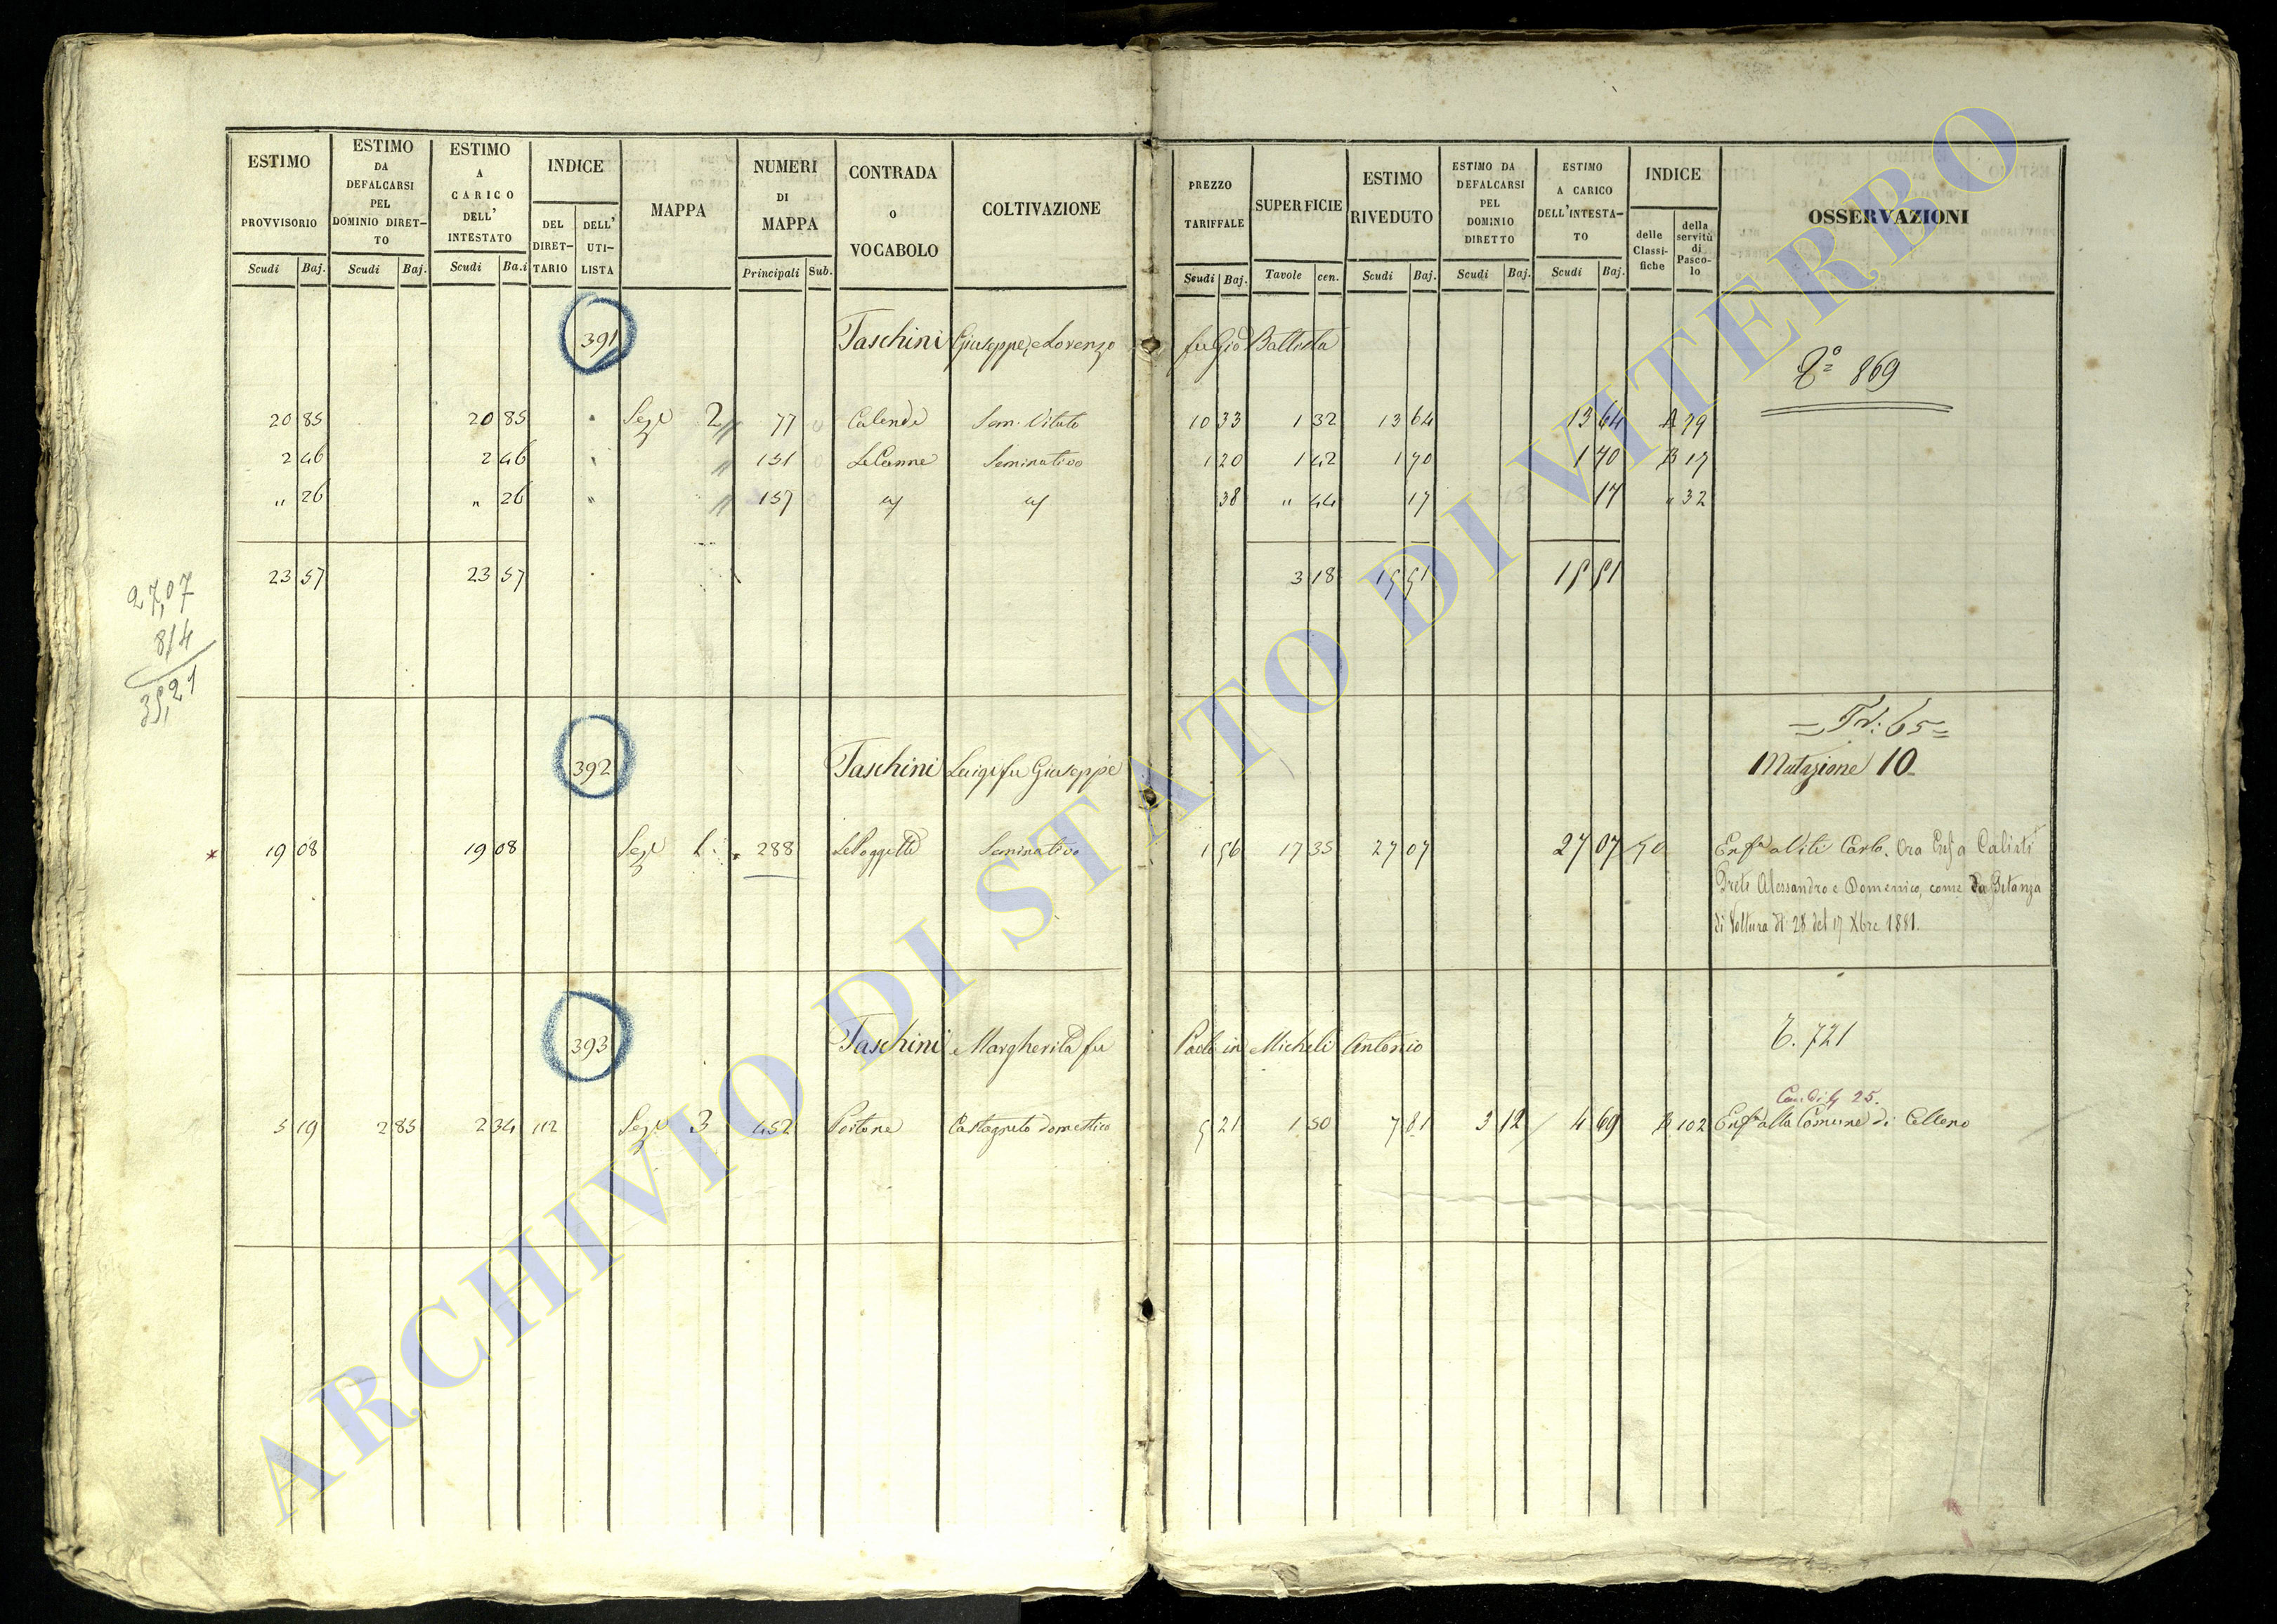 ESTIMO PROVVISORIO
Scudi Baj.
ESTIMO DA DEFALCARSI PEL DOMINIO DIRET-TO
Scudi Baj.
ESTIMO A CARICO DELL' INTESTATO
Scudi Ba.i
INDICE
DEL DIRET-TARIO
DELL' UTI-LISTA
MAPPA
NUMERI DI MAPPA
Principali Sub.
CONTRADA o VOCABOLO
COLTIVAZIONE
PREZZO TARIFFALE
Scudi Baj.
SUPERFICIE
Tavole cen.
ESTIMO RIVEDUTO
Scudi Baj.
ESTIMO DA DEFALCARSI PEL DOMINIO DIRETTO
Scudi Baj.
ESTIMO A CARICO DELL'INTESTA-TO
Scudi Baj.
INDICE
delle Classi-fiche
della servitù di Pasco-lo
OSSERVAZIONI
391 Taschini Giuseppe, e Lorenzo fu Gio Battista
869
20 85 20 85 Sez.e 2 77 Calende Sem. Vitato 10 33 1 32 13 64 13 64 A 29
2 46 2 46 " 151 Le Canne Seminativo 1 20 1 42 1 70 1 70 B 17
" 26 " 26 " 157 38 " 44 17 17 " 32
23 57 23 57 3 18 15 51 15 51
27,07
8,14
35,21
392 Taschini Luigi fu Giuseppe
= Tr. 65 =
Mutazione 10
19 08 19 08 Sez.e 1. 288 Le Poggette Seminativo 1 56 17 35 27 07 27 07 50 Enf.a a Viti Carlo. Ora Enf a Calisti
Preti Alessandro e Domenico, come da Istanza
di Voltura N. 28 del 17 Xbre 1881.
393 Taschini Margherita fu Paolo in Micheli Antonio
T. 721
25.
5 19 2 85 2 34 112 Sez.e 3 452 Portone Castagneto domestico 5 21 1 50 7 81 3 12 4 69 B 102 Enf.a alla Comune di Celleno
ARCHIVIO DI STATO DI VITERBO